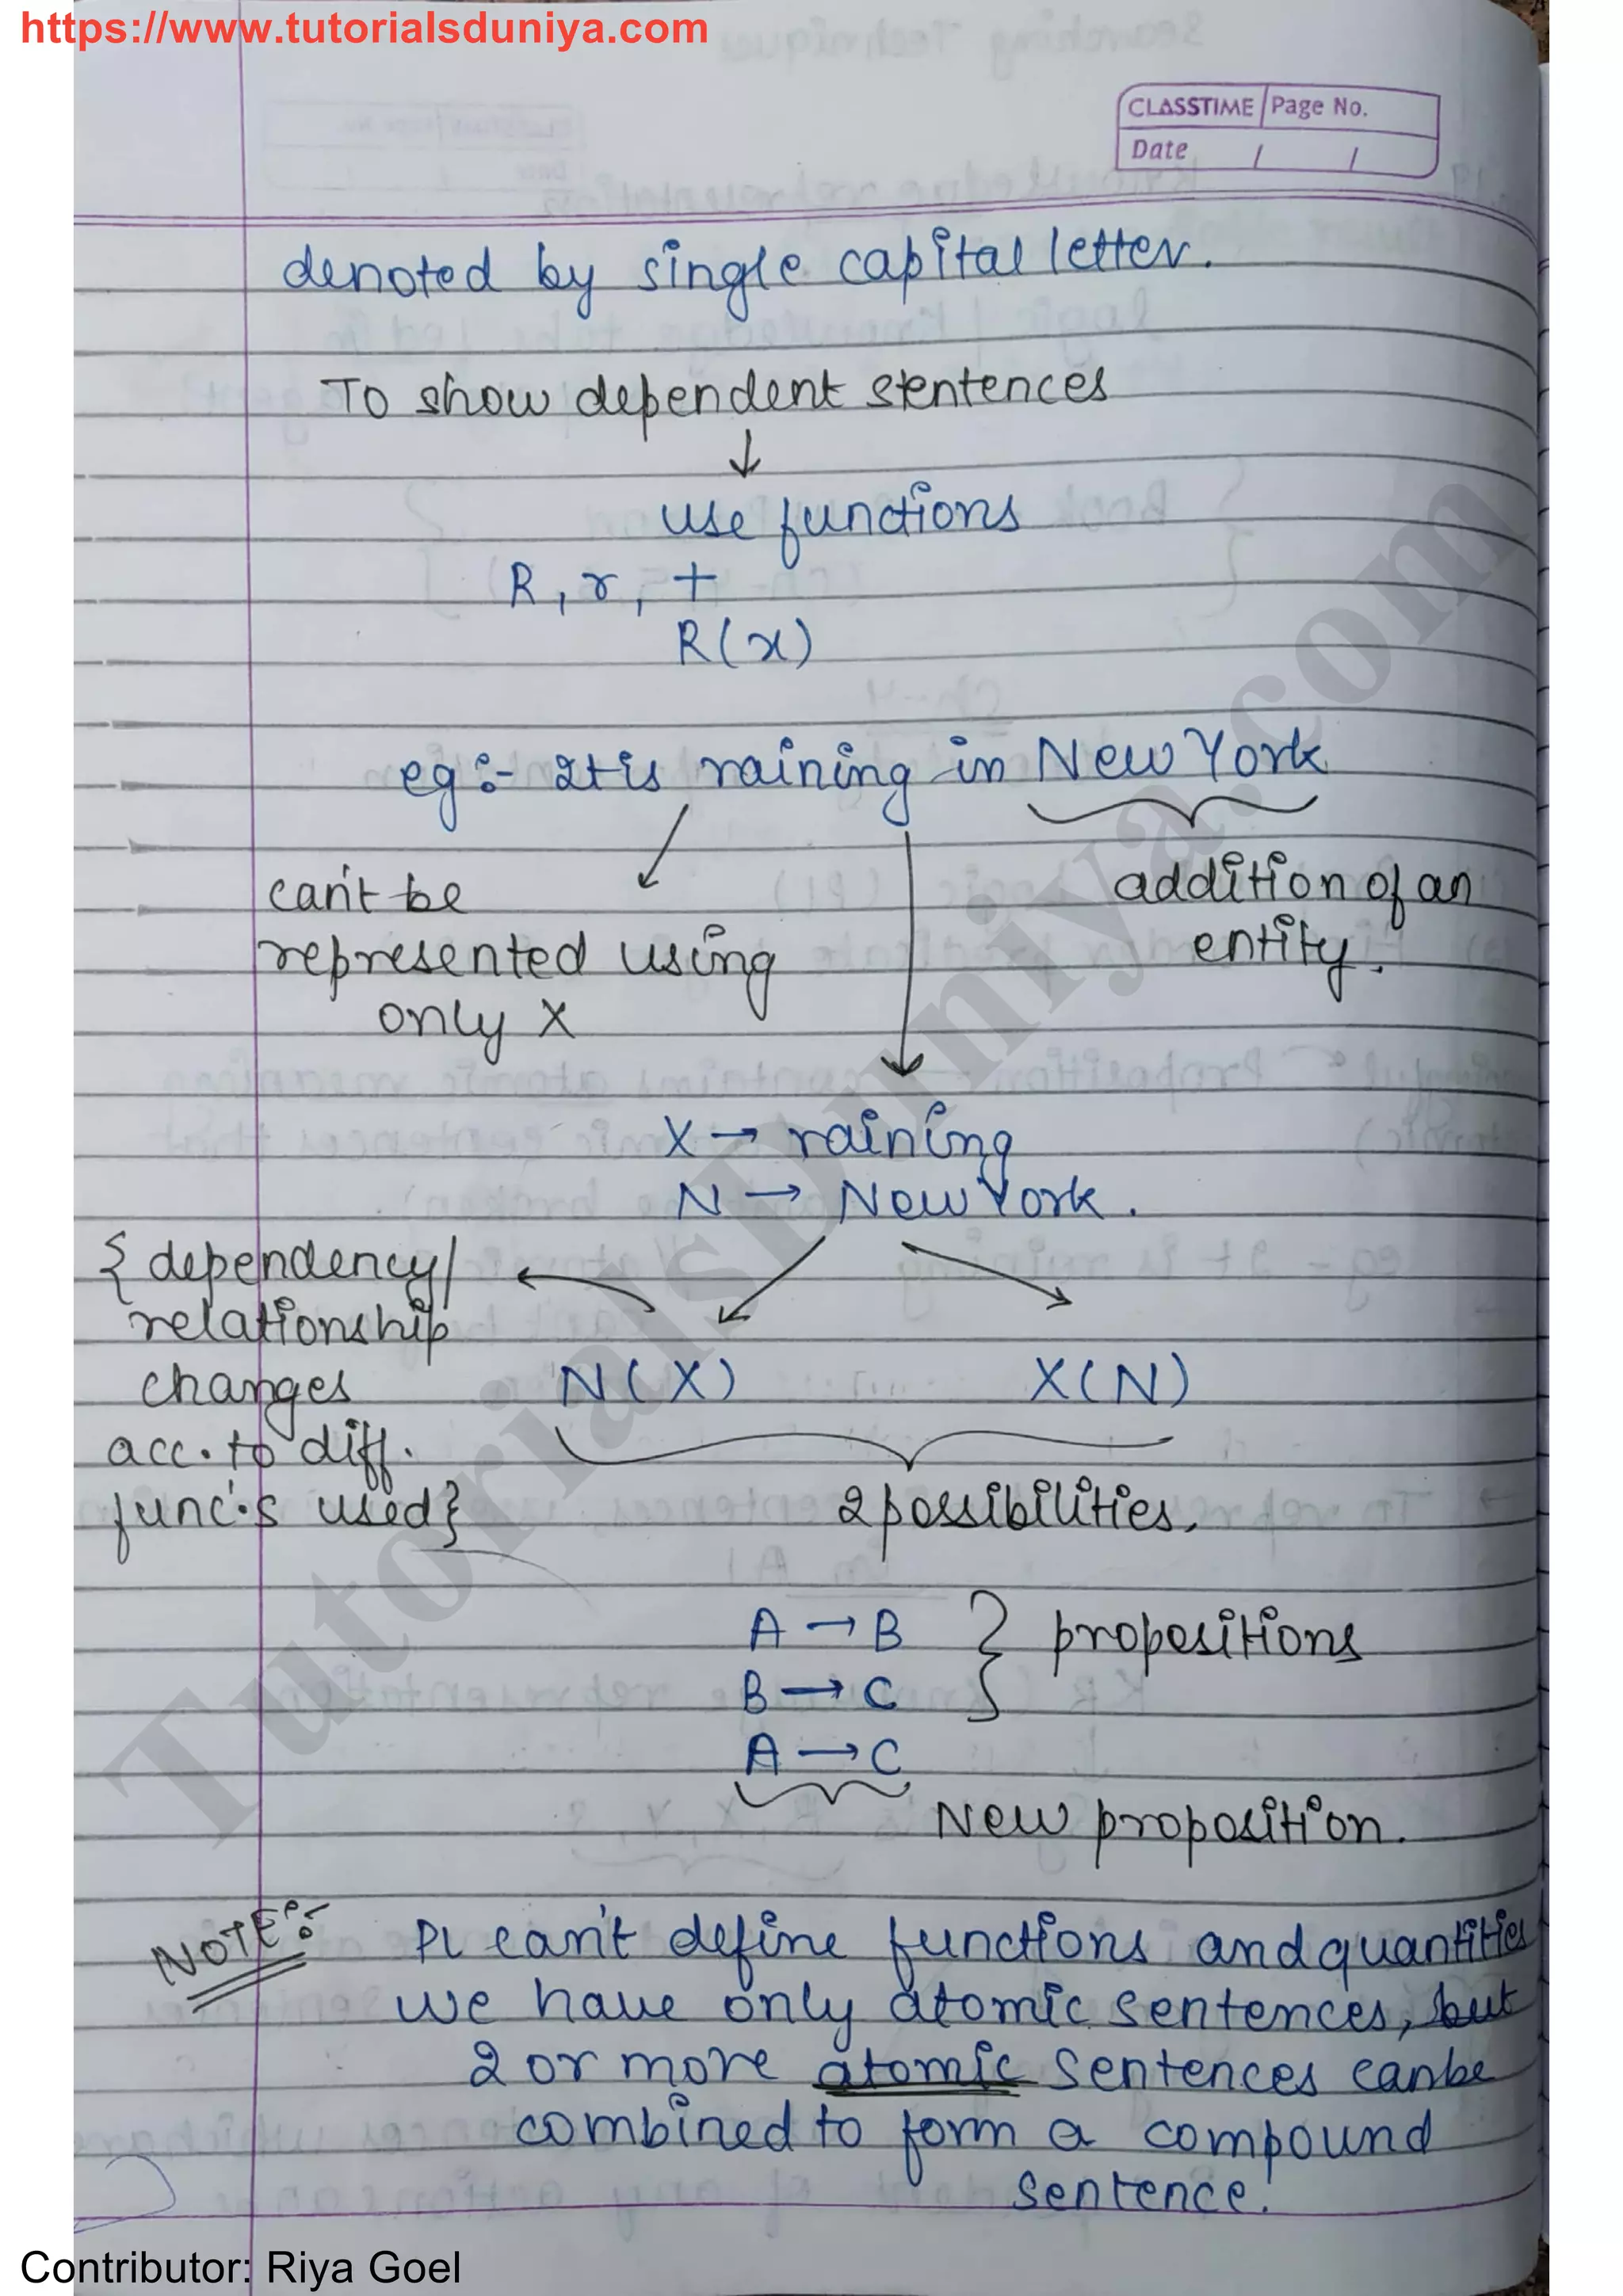 https://www.tutorialsduniya.com
CLASSTIME Page No.
Date / /
denoted by single capital letter.
To show dependent sentences
↓
use functions
R, r, +
R(x)
eg:- It is raining in New York
can't be
represented using
only X
addition of an
entity.
X → raining
N → New York.
{ dependency/
relationship
changes
acc. to diff.
func's used}
N(X) X(N)
2 possibilities.
A → B
B → C
} propositions
A → C
New proposition.
NOTE:-
PL can't define functions and quantities
we have only atomic sentences, but
2 or more atomic sentences can be
combined to form a compound
sentence.
TutorialsDuniya.com
Contributor: Riya Goel